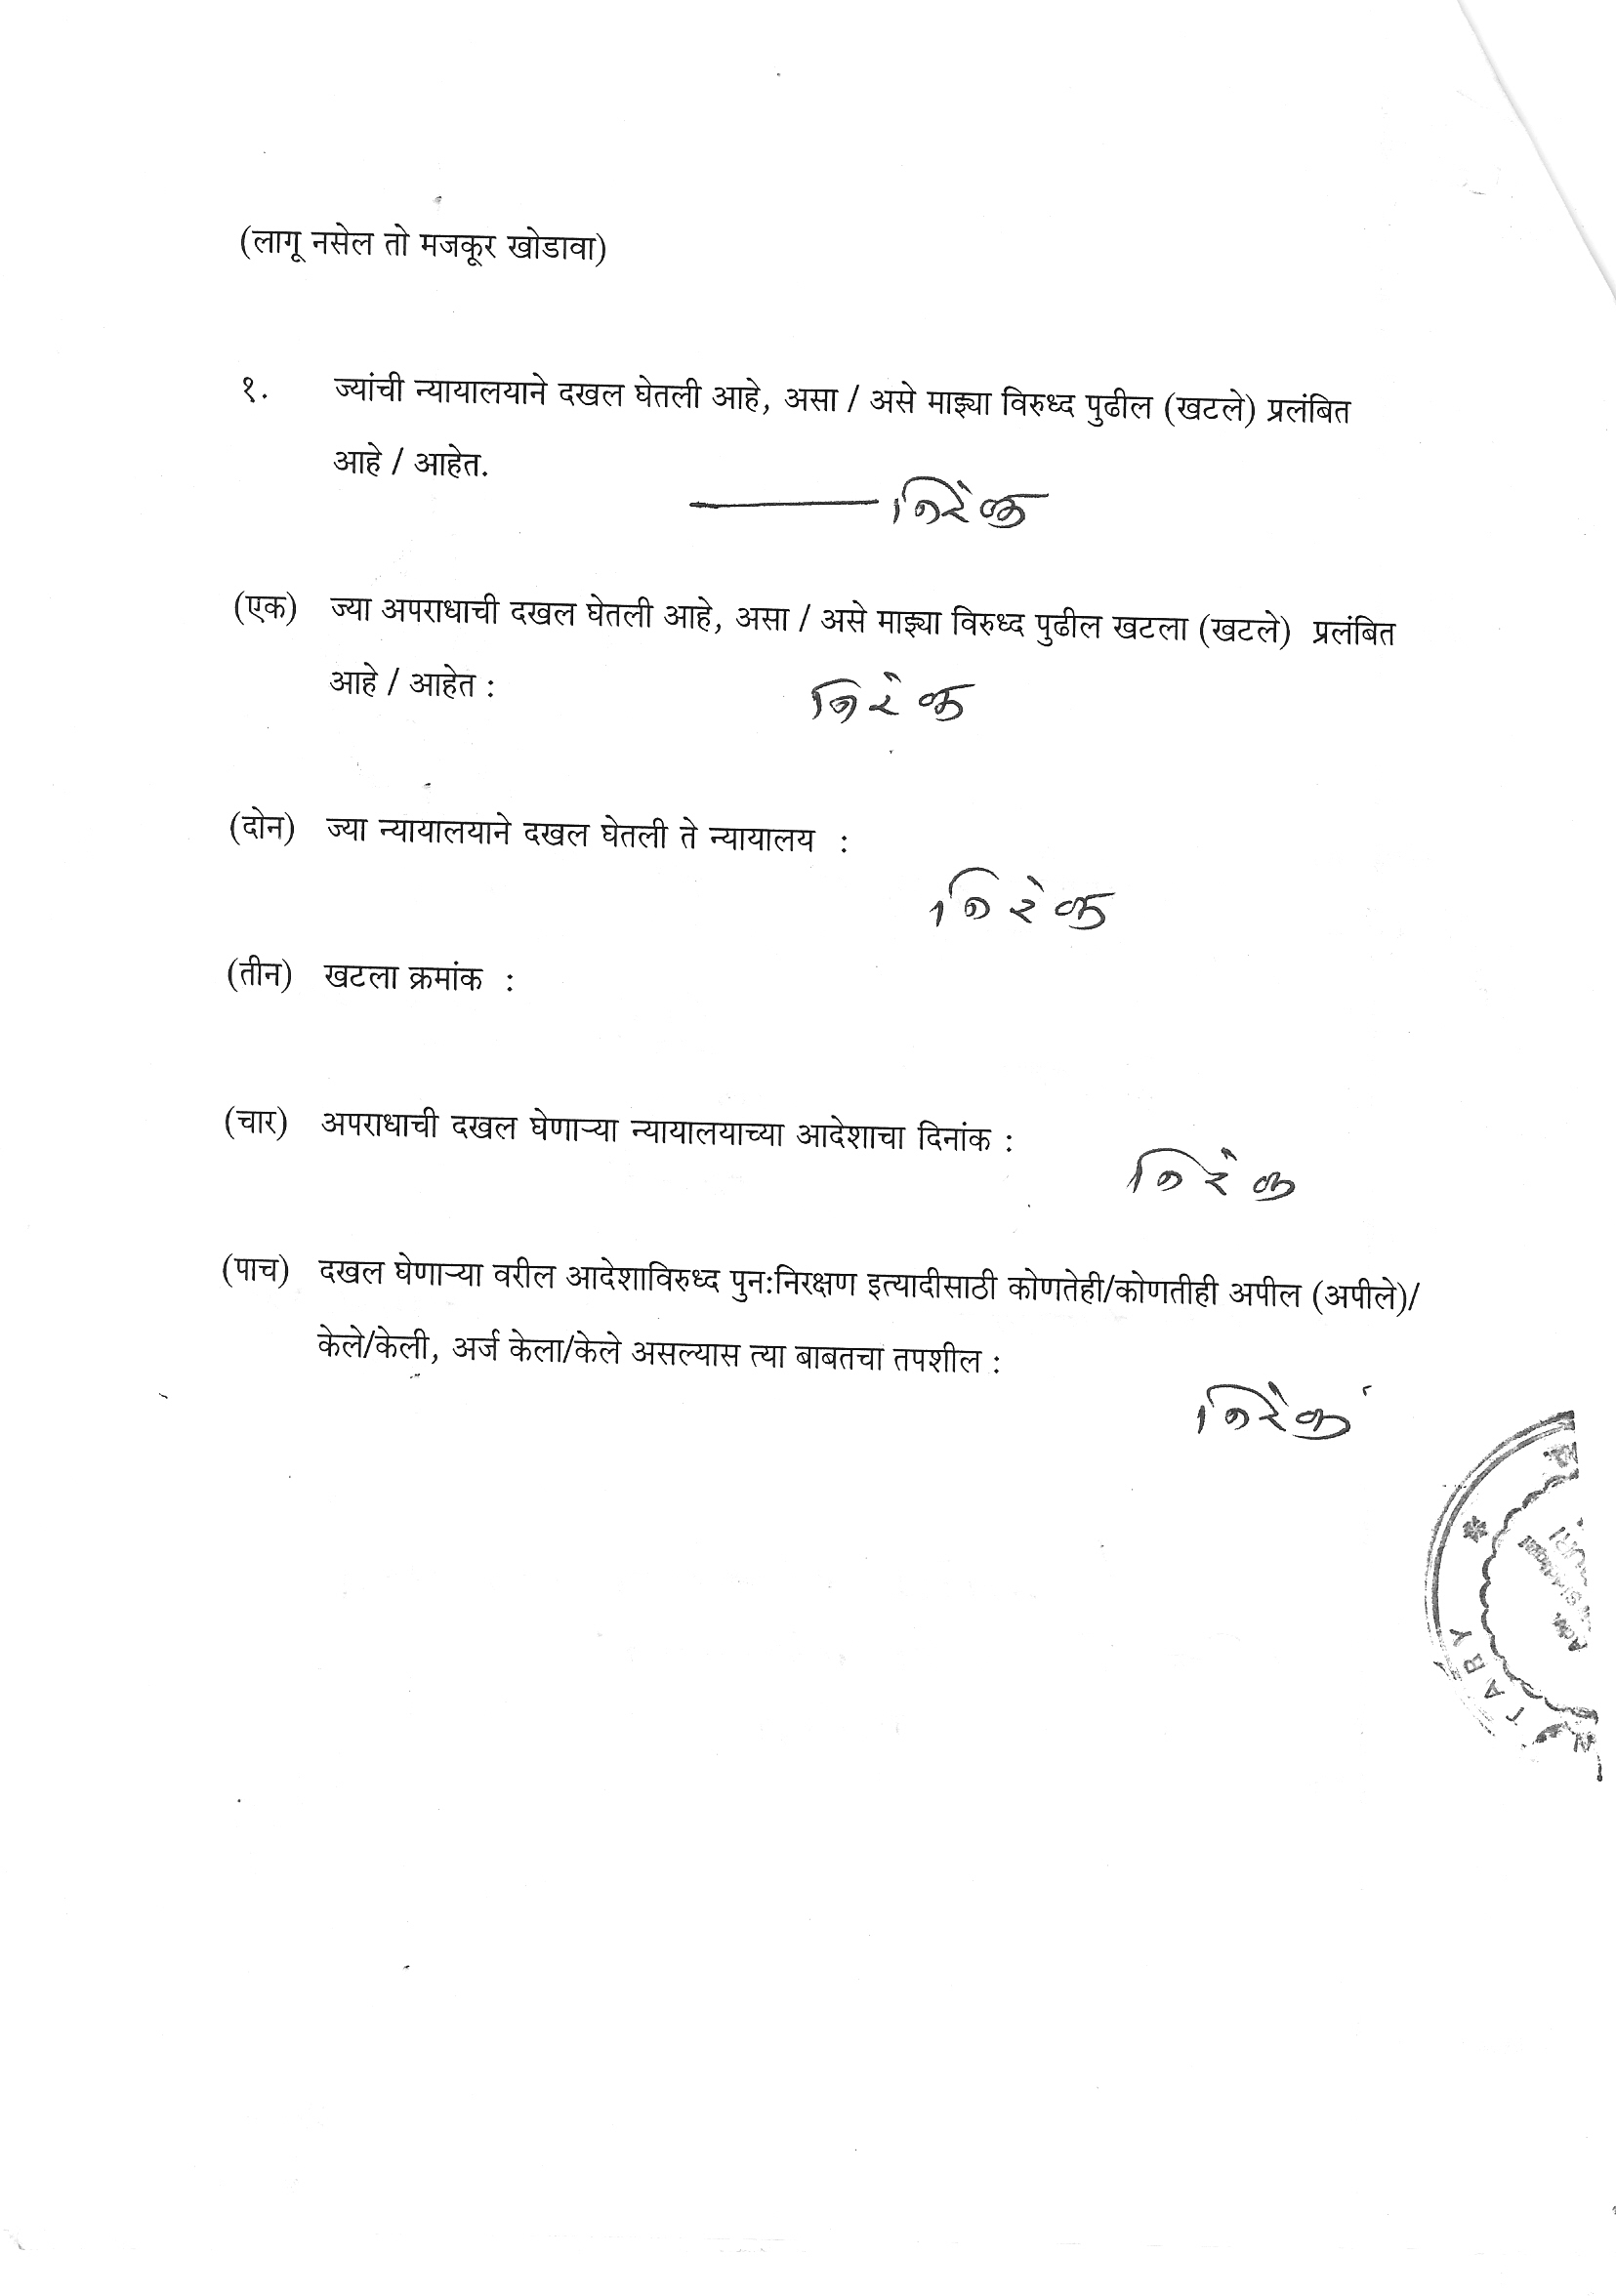 (लागू नसेल तो मजकूर खोडावा)
१. ज्यांची न्यायालयाने दखल घेतली आहे, असा / असे माझ्या विरुध्द पुढील (खटले) प्रलंबित
आहे / आहेत.
निरंक
(एक) ज्या अपराधाची दखल घेतली आहे, असा / असे माझ्या विरुध्द पुढील खटला (खटले) प्रलंबित
आहे / आहेत :
निरंक
(दोन) ज्या न्यायालयाने दखल घेतली ते न्यायालय :
निरंक
(तीन) खटला क्रमांक :
(चार) अपराधाची दखल घेणाऱ्या न्यायालयाच्या आदेशाचा दिनांक :
निरंक
(पाच) दखल घेणाऱ्या वरील आदेशाविरुध्द पुनःनिरक्षण इत्यादीसाठी कोणतेही/कोणतीही अपील (अपीले)/
केले/केली, अर्ज केला/केले असल्यास त्या बाबतचा तपशील :
निरंक
TARY